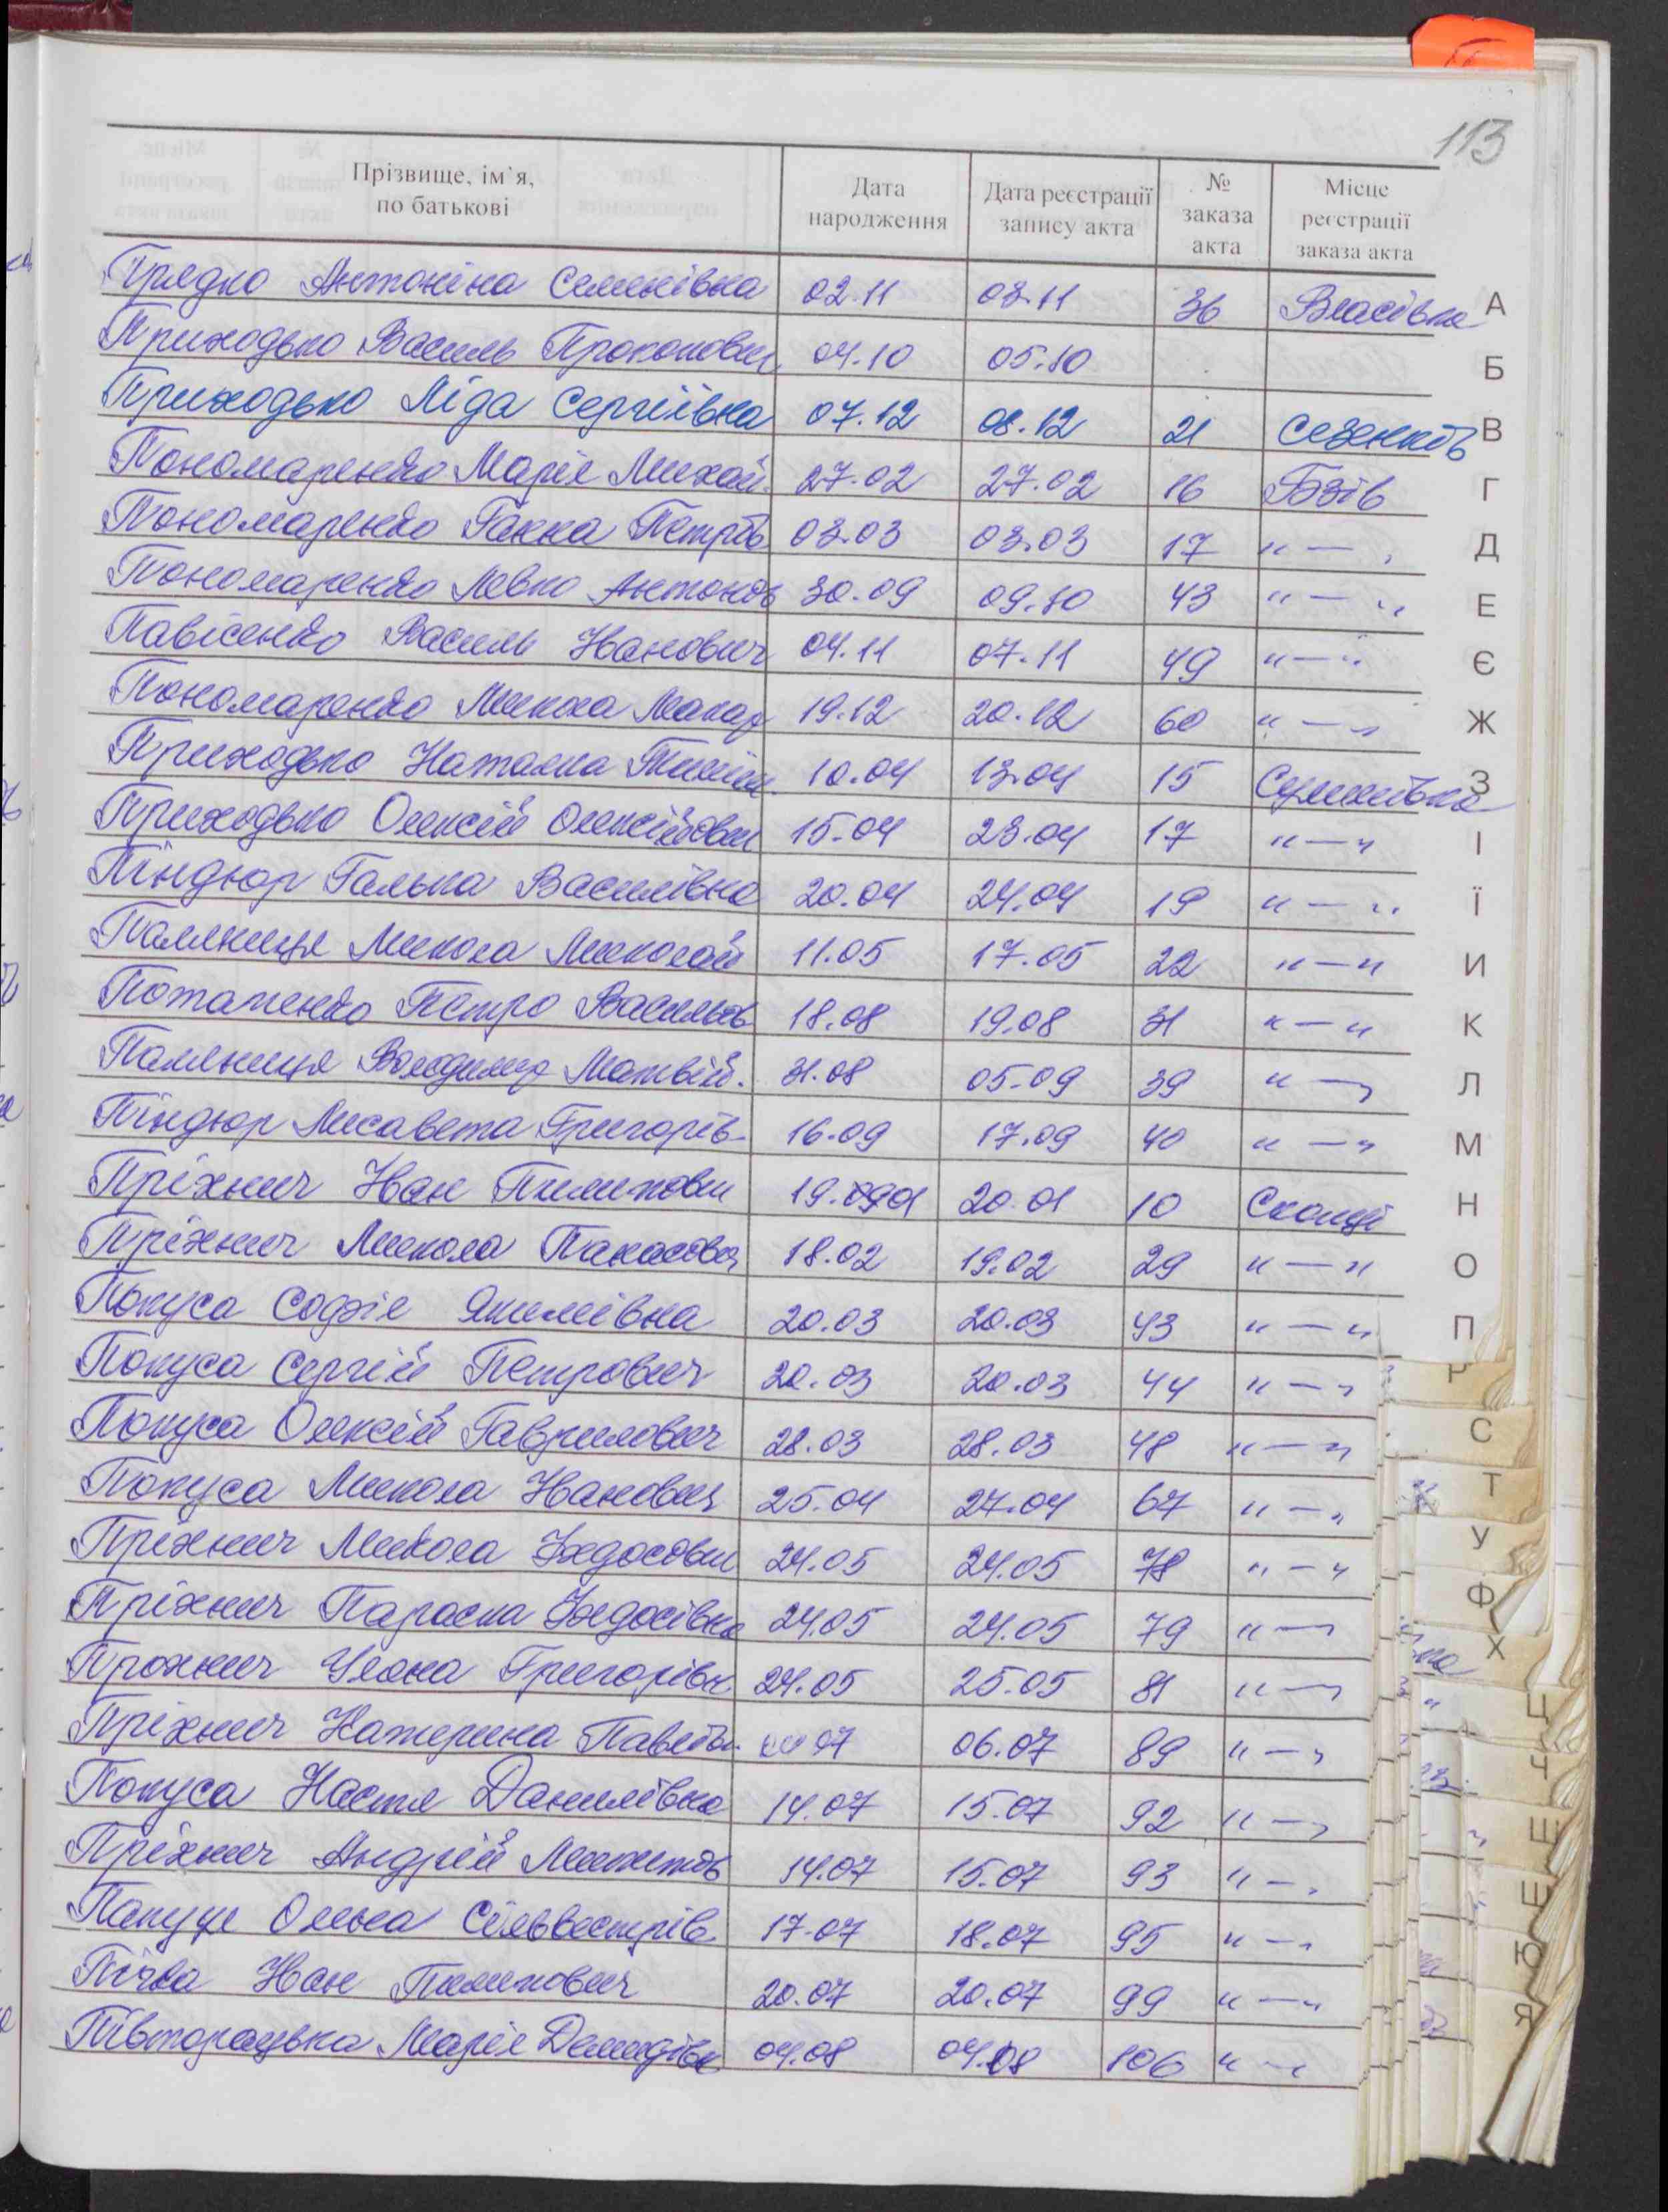 113
Прізвище, ім'я, по батькові | Дата народження | Дата реєстрації запису акта | № заказа акта | Місце реєстрації заказа акта
Прядко Антоніна Семенівна 02.11 03.11 36 Власівка
Приходько Василь Прокопович 04.10 05.10
Приходько Ліда Сергіївна 07.12 08.12 21 Сезенків
Пономаренко Марія Михай. 27.02 27.02 16 Бзів
Пономаренко Ганна Петрів 03.03 03.03 17 "—"
Пономаренко Левко Антонов 30.09 09.10 43 "—"
Павісенко Василь Іванович 04.11 07.11 49 "—"
Пономаренко Микола Макар 19.12 20.12 60 "—"
Приходько Наталка 10.04 13.04 15 Сулимівка
Приходько Олексій Олексійович 15.04 23.04 17 "—"
Піндюр Галька Василівна 20.04 24.04 19 "—"
Паляниця Микола Миколай 11.05 17.05 22 "—"
Потапенко Петро Васильов 18.08 19.08 31 "—"
Паляниця Володимир Матвій. 31.08 05.09 39 "—"
Піндюр Лисавета Григорів. 16.09 17.09 40 "—"
Пріхнич Іван Пилипович 19.01 20.01 10 Скопці
Пріхнич Микола Панасович 18.02 19.02 29 "—"
Покуса Софія Якимівна 20.03 20.03 43 "—"
Покуса Сергій Петрович 20.03 20.03 44 "—"
Покуса Олексій Гаврилович 28.03 28.03 48 "—"
Покуса Микола Іванович 25.04 27.04 67 "—"
Пріхнич Микола Федосович 24.05 24.05 78 "—"
Пріхнич Параска Федосівна 24.05 24.05 79 "—"
Прохнич Уляна Григорівн. 24.05 25.05 81 "—"
Пріхнич Катерина Павлів. 07 06.07 89 "—"
Покуса Настя Данилівна 14.07 15.07 92 "—"
Пріхнич Андрій Микитов 14.07 15.07 93 "—"
Олена Сільвестрів. 17.07 18.07 95 "—"
Іван Пилипович 20.07 20.07 99 "—"
Півторацька Марія Демидівн 04.08 04.08 106 "—"
А
Б
В
Г
Д
Е
Є
Ж
З
І
Ї
И
К
Л
М
Н
О
П
Р
С
Т
У
Ф
Х
Ц
Ч
Ш
Щ
Ю
Я